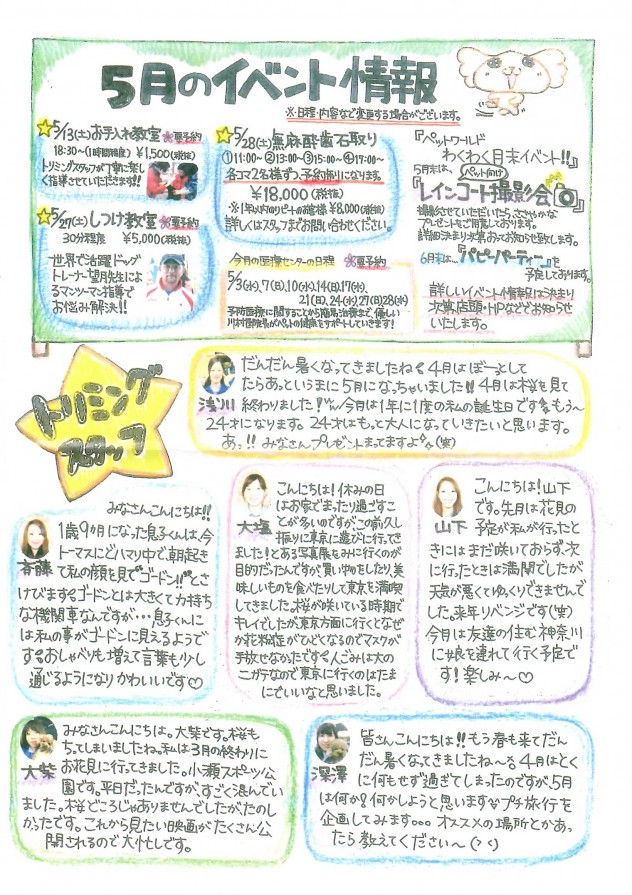 5月のイベント情報
※日程・内容など変更する場合がございます。
5/13(土)お手入れ教室 要予約
18:30~(1時間程度) ¥1,500(税抜)
トリミングスタッフが丁寧に楽し
く指導させていただきます!!
5/27(土)しつけ教室 要予約
30分程度 ¥5,000(税抜)
世界で活躍ドッグ
トレーナー望月先生による
マンツーマン指導で
お悩み解決!!
5/28(土)無麻酔歯石取り
①11:00~②13:00~③15:00~④17:00~
各コマ2名様ずつ、予約制になります。
¥18,000(税抜)
※1年以内のリピートのお客様 ¥8,000(税抜)
詳しくはスタッフまでお問い合わせください。
今月の医療センターの日程 要予約
5/3(水),7(日),10(水),14(日),17(水),
21(日),24(水),27(日)28(水)
予防医療に関することから簡易治療まで、優しい
川村獣医師がペットの健康をサポートしていきます!
『ペットワールド
わくわく月末イベント!!』
5月末は、ペット向け
『レインコート撮影会』
撮影させていただいたら、ささやかな
プレゼントをご用意しております。
詳細決まり次第あってお知らせ致します。
6月末は…『パピーパーティー』を
予定しております。
詳しいイベント情報は決まり
次第店頭・HPなどでお知らせ
いたします。
トリミング
スタッフ
浅川
だんだん暑くなってきましたね 4月はぼーっとして
たらあっというまに5月になっちゃいました!! 4月は桜を見て
終わりました!\(^^)/今月は1年に1度の私の誕生日です もう~
24才になります。24才はもっと大人になっていきたいと思います。
あっ!! みなさんプレゼントまってますよ(笑)
斉藤
みなさんこんにちは!!
1歳9か月になった息子くんは、今
トーマスにどハマり中で、朝起き
て私の顔を見て"ゴードン!!"とさ
けびます ゴードンとは大きくて力持ち
な機関車なんですが…息子くんに
は私の事がゴードンに見えるようで
す おしゃべりも増えて言葉も少し
通じるようになりかわいいです♡
大塩
こんにちは!休みの日
はお家でまったり過ごすこ
とが多いのですが、この前久し
振りに東京に遊びに行って
きました!とある写真展をみに行くのが
目的だったんですが、買い物をしたり、美
味しいものを食べたりして東京を満喫
してきました。桜が咲いている時期で
キレイでしたが、東京方面に行くとなぜ
か花粉症がひどくなるのでマスクが
手放せなかったです 人ごみは大の
ニガテなので東京に行くのはたま
にでいいなと思いました。
山下
こんにちは!山下
です。先月は花見の
予定が私が行ったと
きにはまだ咲いておらず、次
に行ったときは満開でしたが
天気が悪くてゆっくりできませんで
した。来年リベンジです(笑)
今月は友達の住む神奈川
に娘を連れて行く予定で
す!楽しみ~♡
大柴
みなさんこんにちは。大柴です。桜も
ちってしまいましたね、私は3月の終わりに
お花見に行ってきました。小瀬スポーツ公
園です。平日だったんですが、すごく混んでい
ました。桜どころじゃありませんでしたがたのし
かったです。これから見たい映画がたくさん公
開されるので大忙しです。
深澤
皆さんこんにちは!!もう春も来てだん
だん暑くなってきましたね~ 4月はと
くに何もせず過ぎてしまったのですが、5月
は何か!何かしようと思います プチ旅行を
企画してみます… オススメの場所とかあっ
たら教えてください~